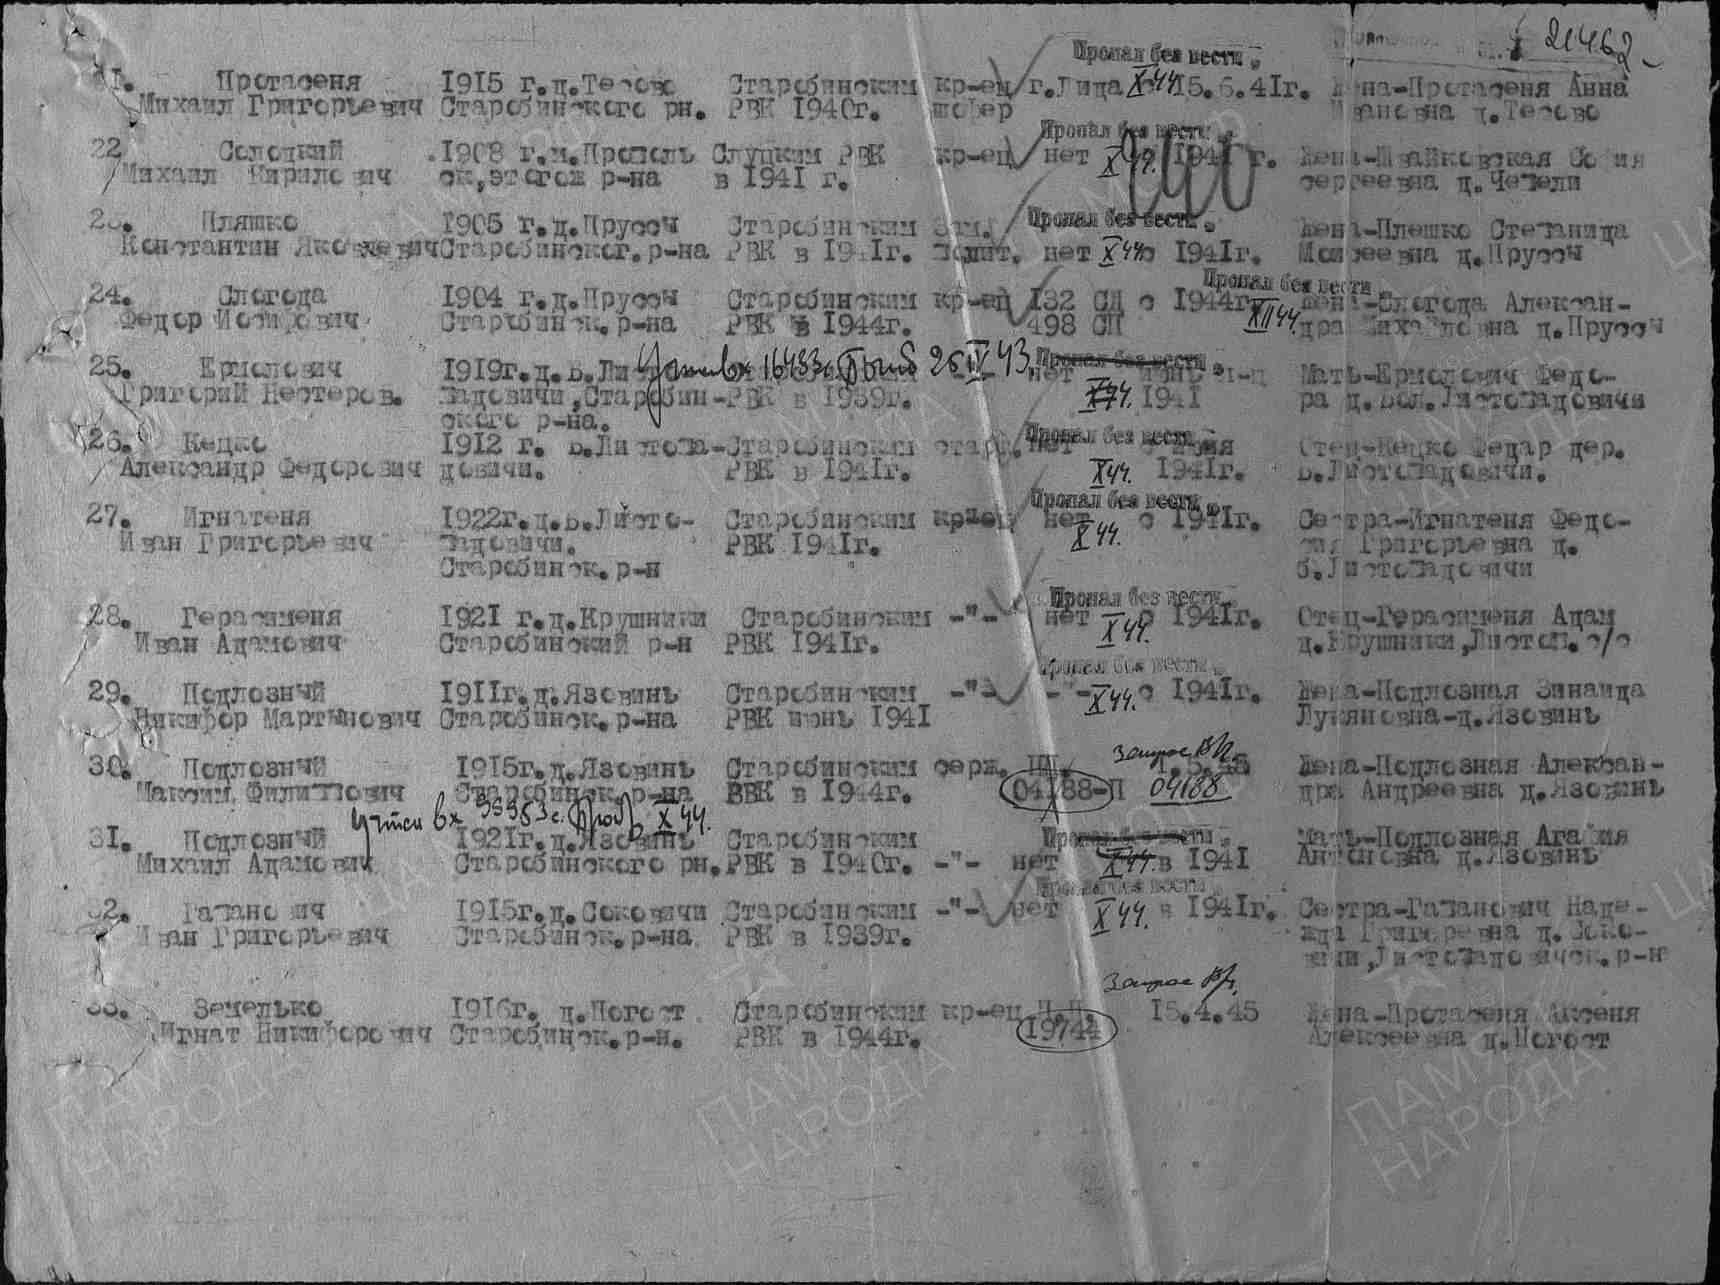 21462
Пропал без вести.
Протасеня 1915 г.д.Терово Старобинским кр-ец г.Лида X 44. 15.6.41г. Жена-Протасеня Анна
Михаил Григорьевич Старобинского рн. РВК 1940г. шофер Ивановна д.Терово
Пропал без вести.
22 Солоцкий 1908 г.м.Прополь Слуцким РВК кр-ец нет X 44. 1941 г. Жена-Швайковская
Михаил Кирилович ок,этогож р-на в 1941 г. сергеевна д.Чепели
Пропал без вести.
Пляшко 1905 г.д.Прусоч Старобинским Зам. Жена-Плешко Степанида
Константин Яковлевич Старобинског.р-на РВК в 1941г. полит. нет X 44. 1941г. Моисеевна д.Прусоч
Пропал без вести
24. Слогода 1904 г.д.Прусоч Старобинским кр-ец 132 СД с 1944г. Жена-Слогода Алексан-
Федор Иосифович Старобинск.р-на РВК в 1944г. 498 СП XII 44. дра Михайловна д.Прусоч
25. Ермолович 1919г.д.Б.Ли вх 16483с 26 IV 43. Пропал без вести. нет Мать-Ермолович Федо-
Григорий Нестеров. падовичи,Старобин- РВК в 1939г. X 44. 1941 ра д.Бол.Листопадовичи
ского р-на.
26. Кецко 1912 г. Б.Листопа- Старобинским нет Пропал без вести Отец-Кецко Федар дер.
Александр Федорович довичи. РВК в 1941г. X 44. 1941г. Б.Листопадовичи.
Пропал без вести.
27. Игнатеня 1922г.д.Б.Листо- Старобинским кр-ец нет с 1941г. Сестра-Игнатеня Федо-
Иван Григорьевич падовичи. РВК 1941г. X 44. Григорьевна д.
Старобинск.р-н Б.Листопадовичи
Пропал без вести.
28. Герасименя 1921 г.д.Крушники Старобинским -"- нет с 1941г. Отец-Герасименя Адам
Иван Адамович Старобинский р-н РВК 1941г. X 44. д.Крушники,Листоп.с/с
Пропал без вести.
29. Подлозный 1911г.д.Язовинь Старобинским -"- -"- X 44. с 1941г. Жена-Подлозная Зинаида
Никифор Мартынович Старобинск.р-на РВК июнь 1941 Лукяновна-д.Язовинь
запрос
30. Подлозный 1915г.д.Язовинь Старобинским серж. ПП. Жена-Подлозная Алексан-
Максим Филиппович Старобинск.р-на РВК в 1944г. 04188-П 04188 дра Андреевна д.Язовинь
вх 99983с. X 44.
31. Подлозный 1921г.д.Язовинь Старобинским Пропал без вести. Мать-Подлозная Агафия
Михаил Адамович Старобинского рн. РВК в 1940г. -"- нет X 44. в 1941 Антоновна д.Язовинь
Пропал без вести.
Гапанович 1915г.д.Соковичи Старобинским -"- нет X 44. в 1941г. Сестра-Гапанович Наде-
Иван Григорьевич Старобинск.р-на РВК в 1939г. жда Григоревна д.Соко-
вичи,Листопадовичск.р-н
запрос
Земелько 1916г. д.Погост Старобинским кр-ец П.П. 15.4.45 Жена-Протасеня Аксеня
Игнат Никифорович Старобинск.р-н. РВК в 1944г. 19744 Алексеевна д.Погост
ПАМЯТЬ НАРОДА